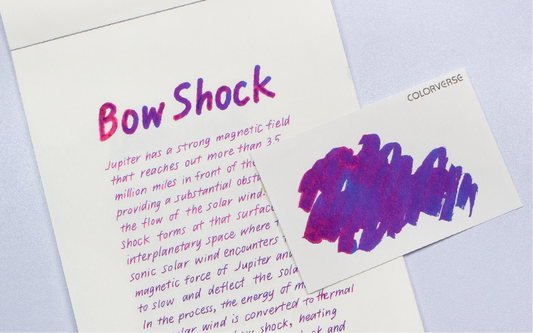 Bow Shock
Jupiter has a strong magnetic field
that reaches out more than 3.5
million miles in front of the
providing a substantial
the flow of the solar wind.
shock forms at that
interplanetary space where
sonic solar wind encounters
magnetic force of Jupiter and
to slow and deflect the
In the process, the energy of
wind is converted to thermal
shock, heating
and
COLORVERSE